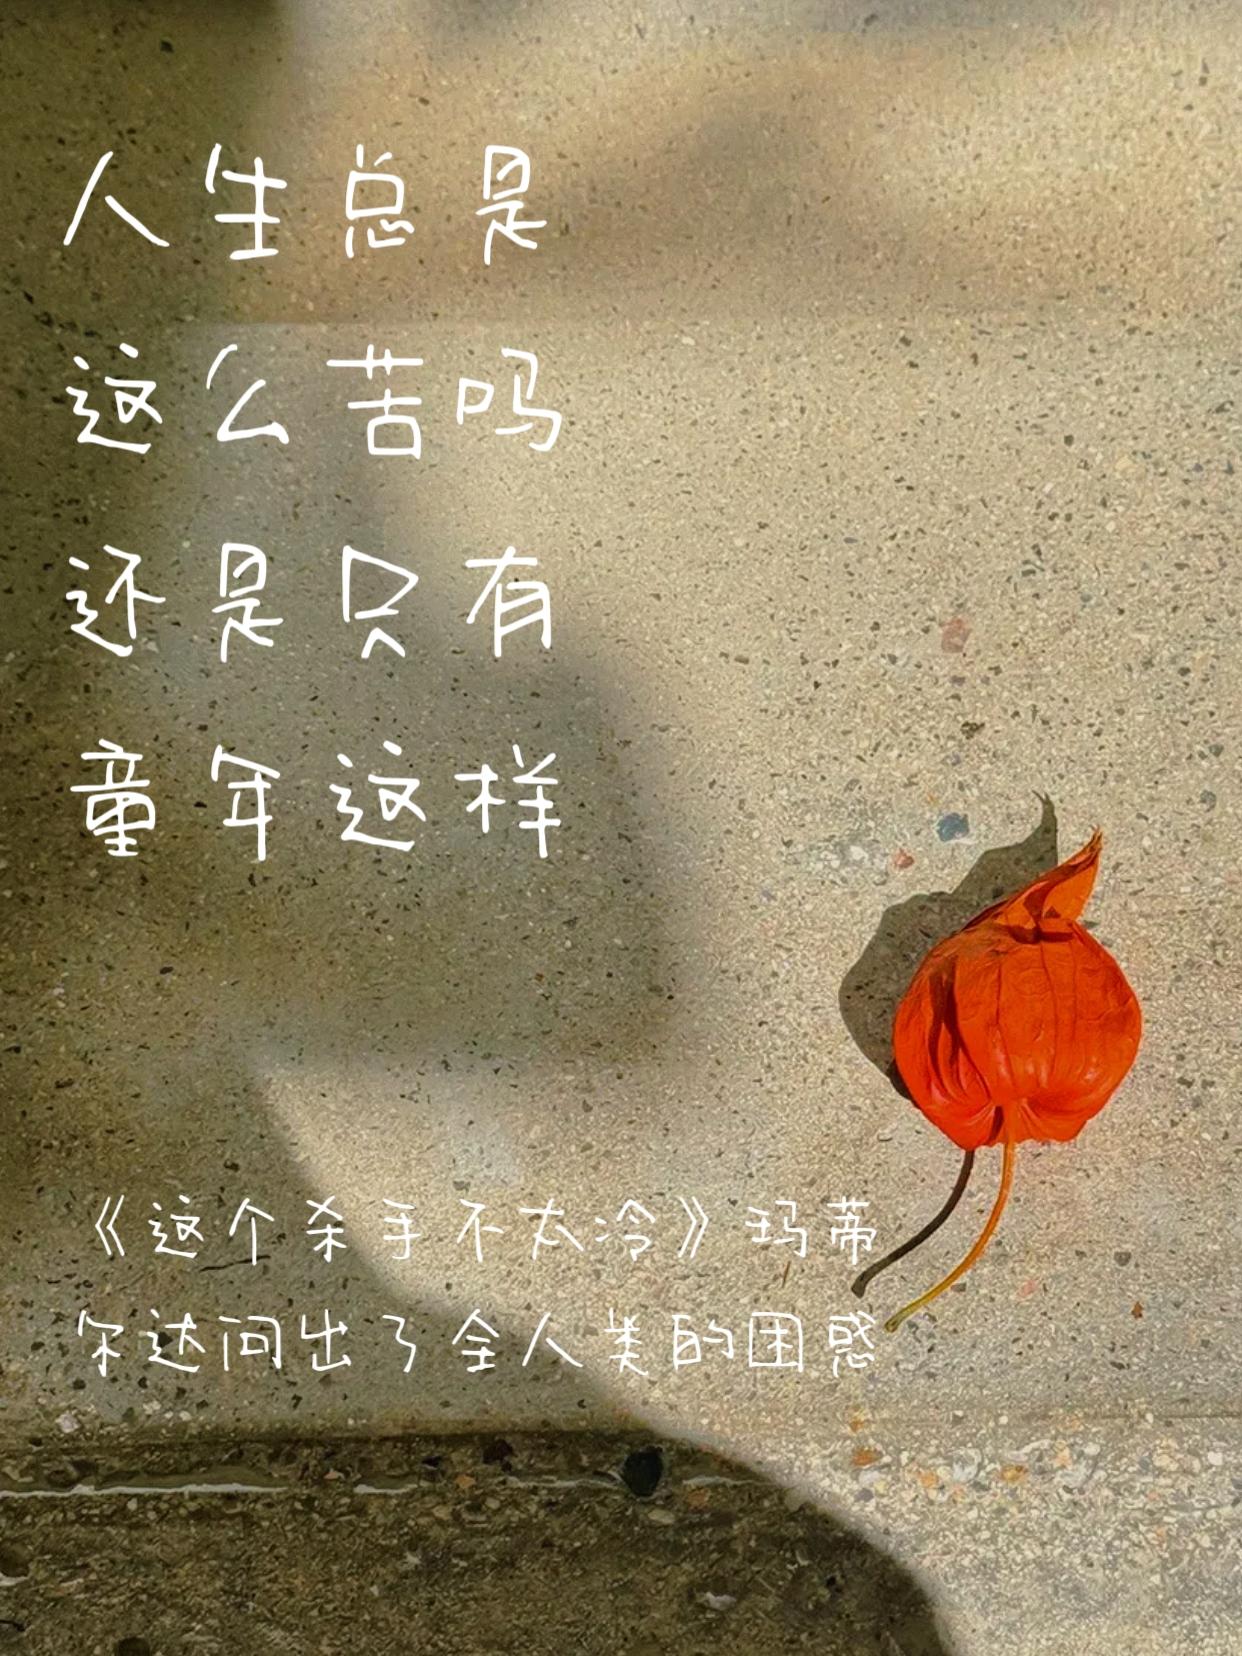 人生总是
这么苦吗
还是只有
童年这样
《这个杀手不太冷》玛蒂
尔达问出了全人类的困惑